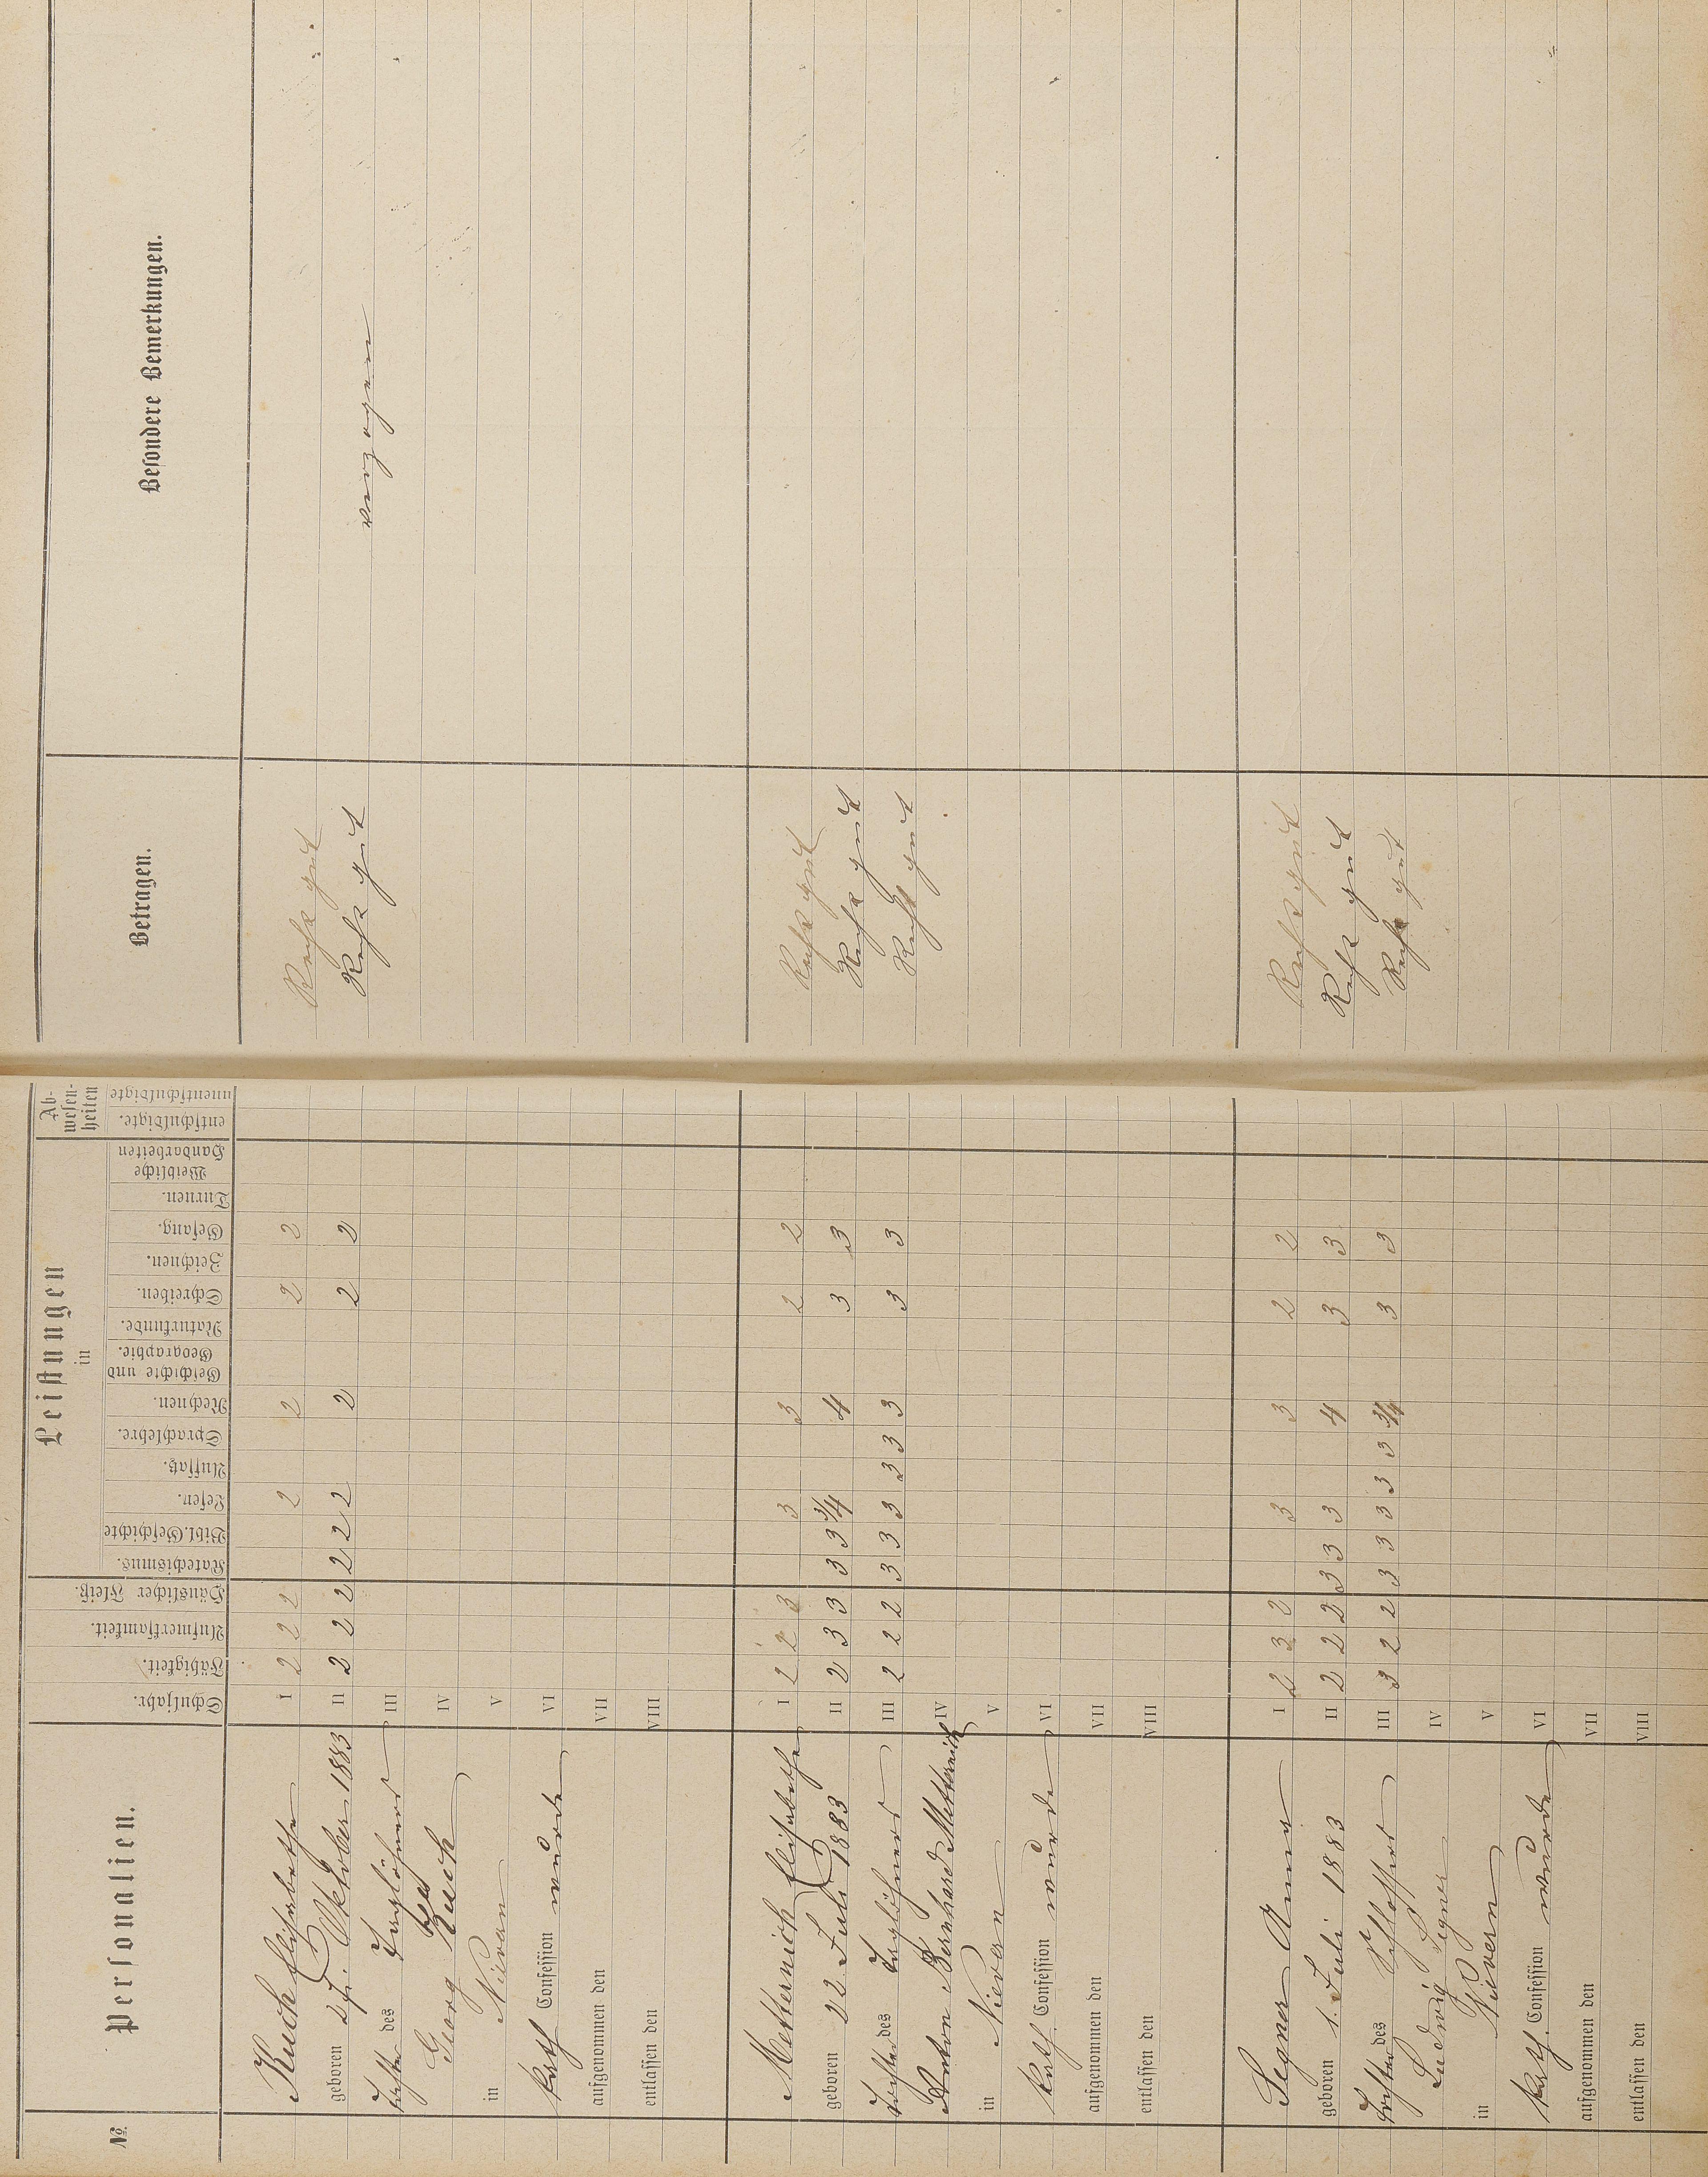 Nº
Personalien.
Schuljahr.
Fähigkeit.
Aufmerksamkeit.
Häuslicher Fleiß.
Leistungen
in
Katechismus.
Bibl. Geschichte
Lesen.
Aufsatz.
Sprachlehre.
Rechnen.
Geschichte und
Geographie.
Naturkunde.
Schreiben.
Zeichnen.
Gesang.
Turnen.
Weibliche
Handarbeiten
Ab-
wesen-
heiten
entschuldigte.
unentschuldigte
Betragen.
Besondere Bemerkungen.
Kuch Elisabetha I 2 2 2 2 2 2 2 Recht gut
geboren Oktober 1883 II 2 2 2 2 2 2 2 2 2 Recht gut
Tochter des Taglöhners III verzogen
Georg Kuch IV
in Nievern V
kath. Confession wurde VI
aufgenommen den VII
entlassen den VIII
Metternich Elisabetha I 2 2 3 3 3 2 2 Recht gut
geboren 22. Juli 1883 II 2 3 3 3 3 3/4 4 3 3 Recht gut
Tochter des Taglöhners III 2 2 2 3 3 3 3 3 3 3 3 Recht gut
Anton Bernhard Metternich IV
in Nievern V
kath. Confession wurde VI
aufgenommen den VII
entlassen den VIII
Segner Anna I 2 3 2 3 3 2 2 Recht gut
geboren 1. Juli 1883 II 2 2 2 3 3 3 4 3 3 Recht gut
Tochter des Schlossers III 3 2 2 3 3 3 3 3 3/4 3 3 Recht gut
Ludwig Segner IV
in Nievern V
kath. Confession wurde VI
aufgenommen den VII
entlassen den VIII